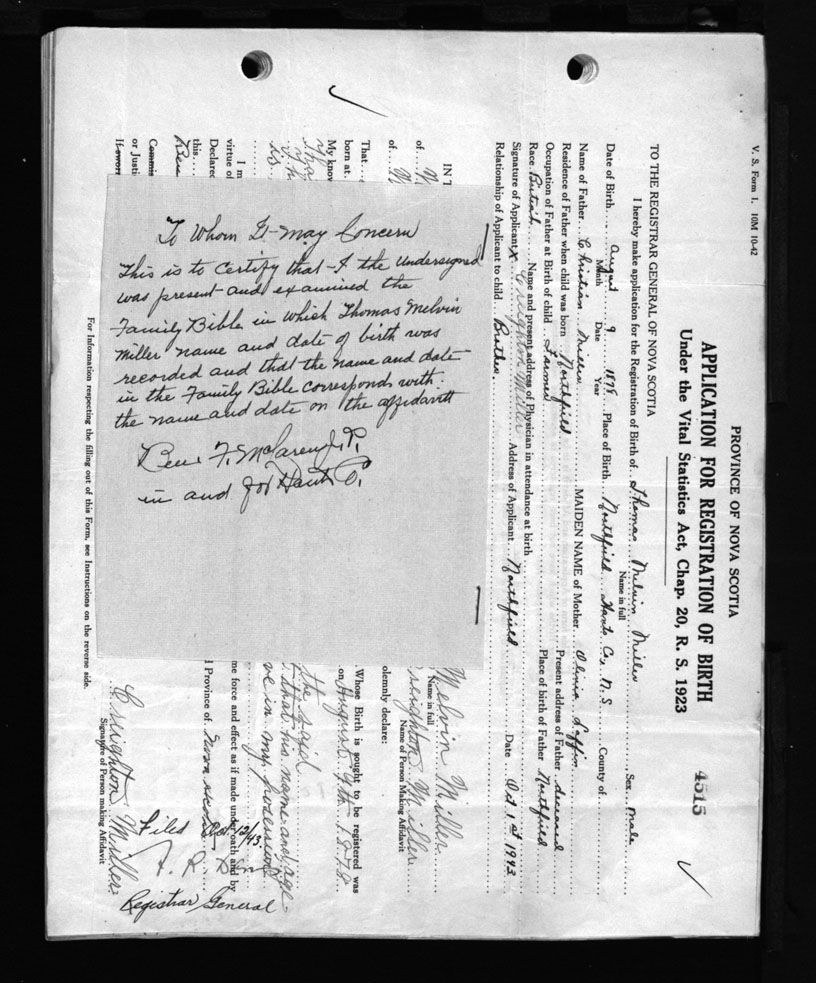 V. S. Form 1. 10M 10-42
PROVINCE OF NOVA SCOTIA
APPLICATION FOR REGISTRATION OF BIRTH
Under the Vital Statistics Act, Chap. 20, R. S. 1923
4515
TO THE REGISTRAR GENERAL OF NOVA SCOTIA
I hereby make application for the Registration of Birth of Thomas Melvin Miller Sex Male
Name in full
Date of Birth August 9 1878 Place of Birth Northfield Hants Co. N.S. County of
Month Date Year
Name of Father Christian Miller MAIDEN NAME of Mother
Residence of Father when child was born Northfield Present address of Father deceased
Occupation of Father at Birth of child Farmer Place of birth of Father Northfield
Race British Name and present address of Physician in attendance at birth
Signature of Applicant X Creighton Miller Address of Applicant Northfield Date Oct. 1st 1943
Relationship of Applicant to child Brother.
To Whom It May Concern
This is to Certify that I the undersigned
was present and examined the
Family Bible in which Thomas Melvin
Miller name and date of birth was
recorded and that the name and date
in the Family Bible corresponds with
the name and date on the affidavit
in and for Hants Co.
IN T
Melvin Miller
Name in full
of
Creighton Miller
Name of Person Making Affidavit
of
olemnly declare:
That
Whose Birth is sought to be registered was
born at
on August 9th 1878
My know
the said
that his name and age
in my possession
I m
me force and effect as if made under oath and by
virtue of
Declared
Province of Nova Scotia
this
Filed Oct 12/43
Commis
or Justi
Registrar General
If swor
Creighton Miller
Signature of Person making Affidavit
For Information respecting the filling out of this Form, see Instructions on the reverse side.